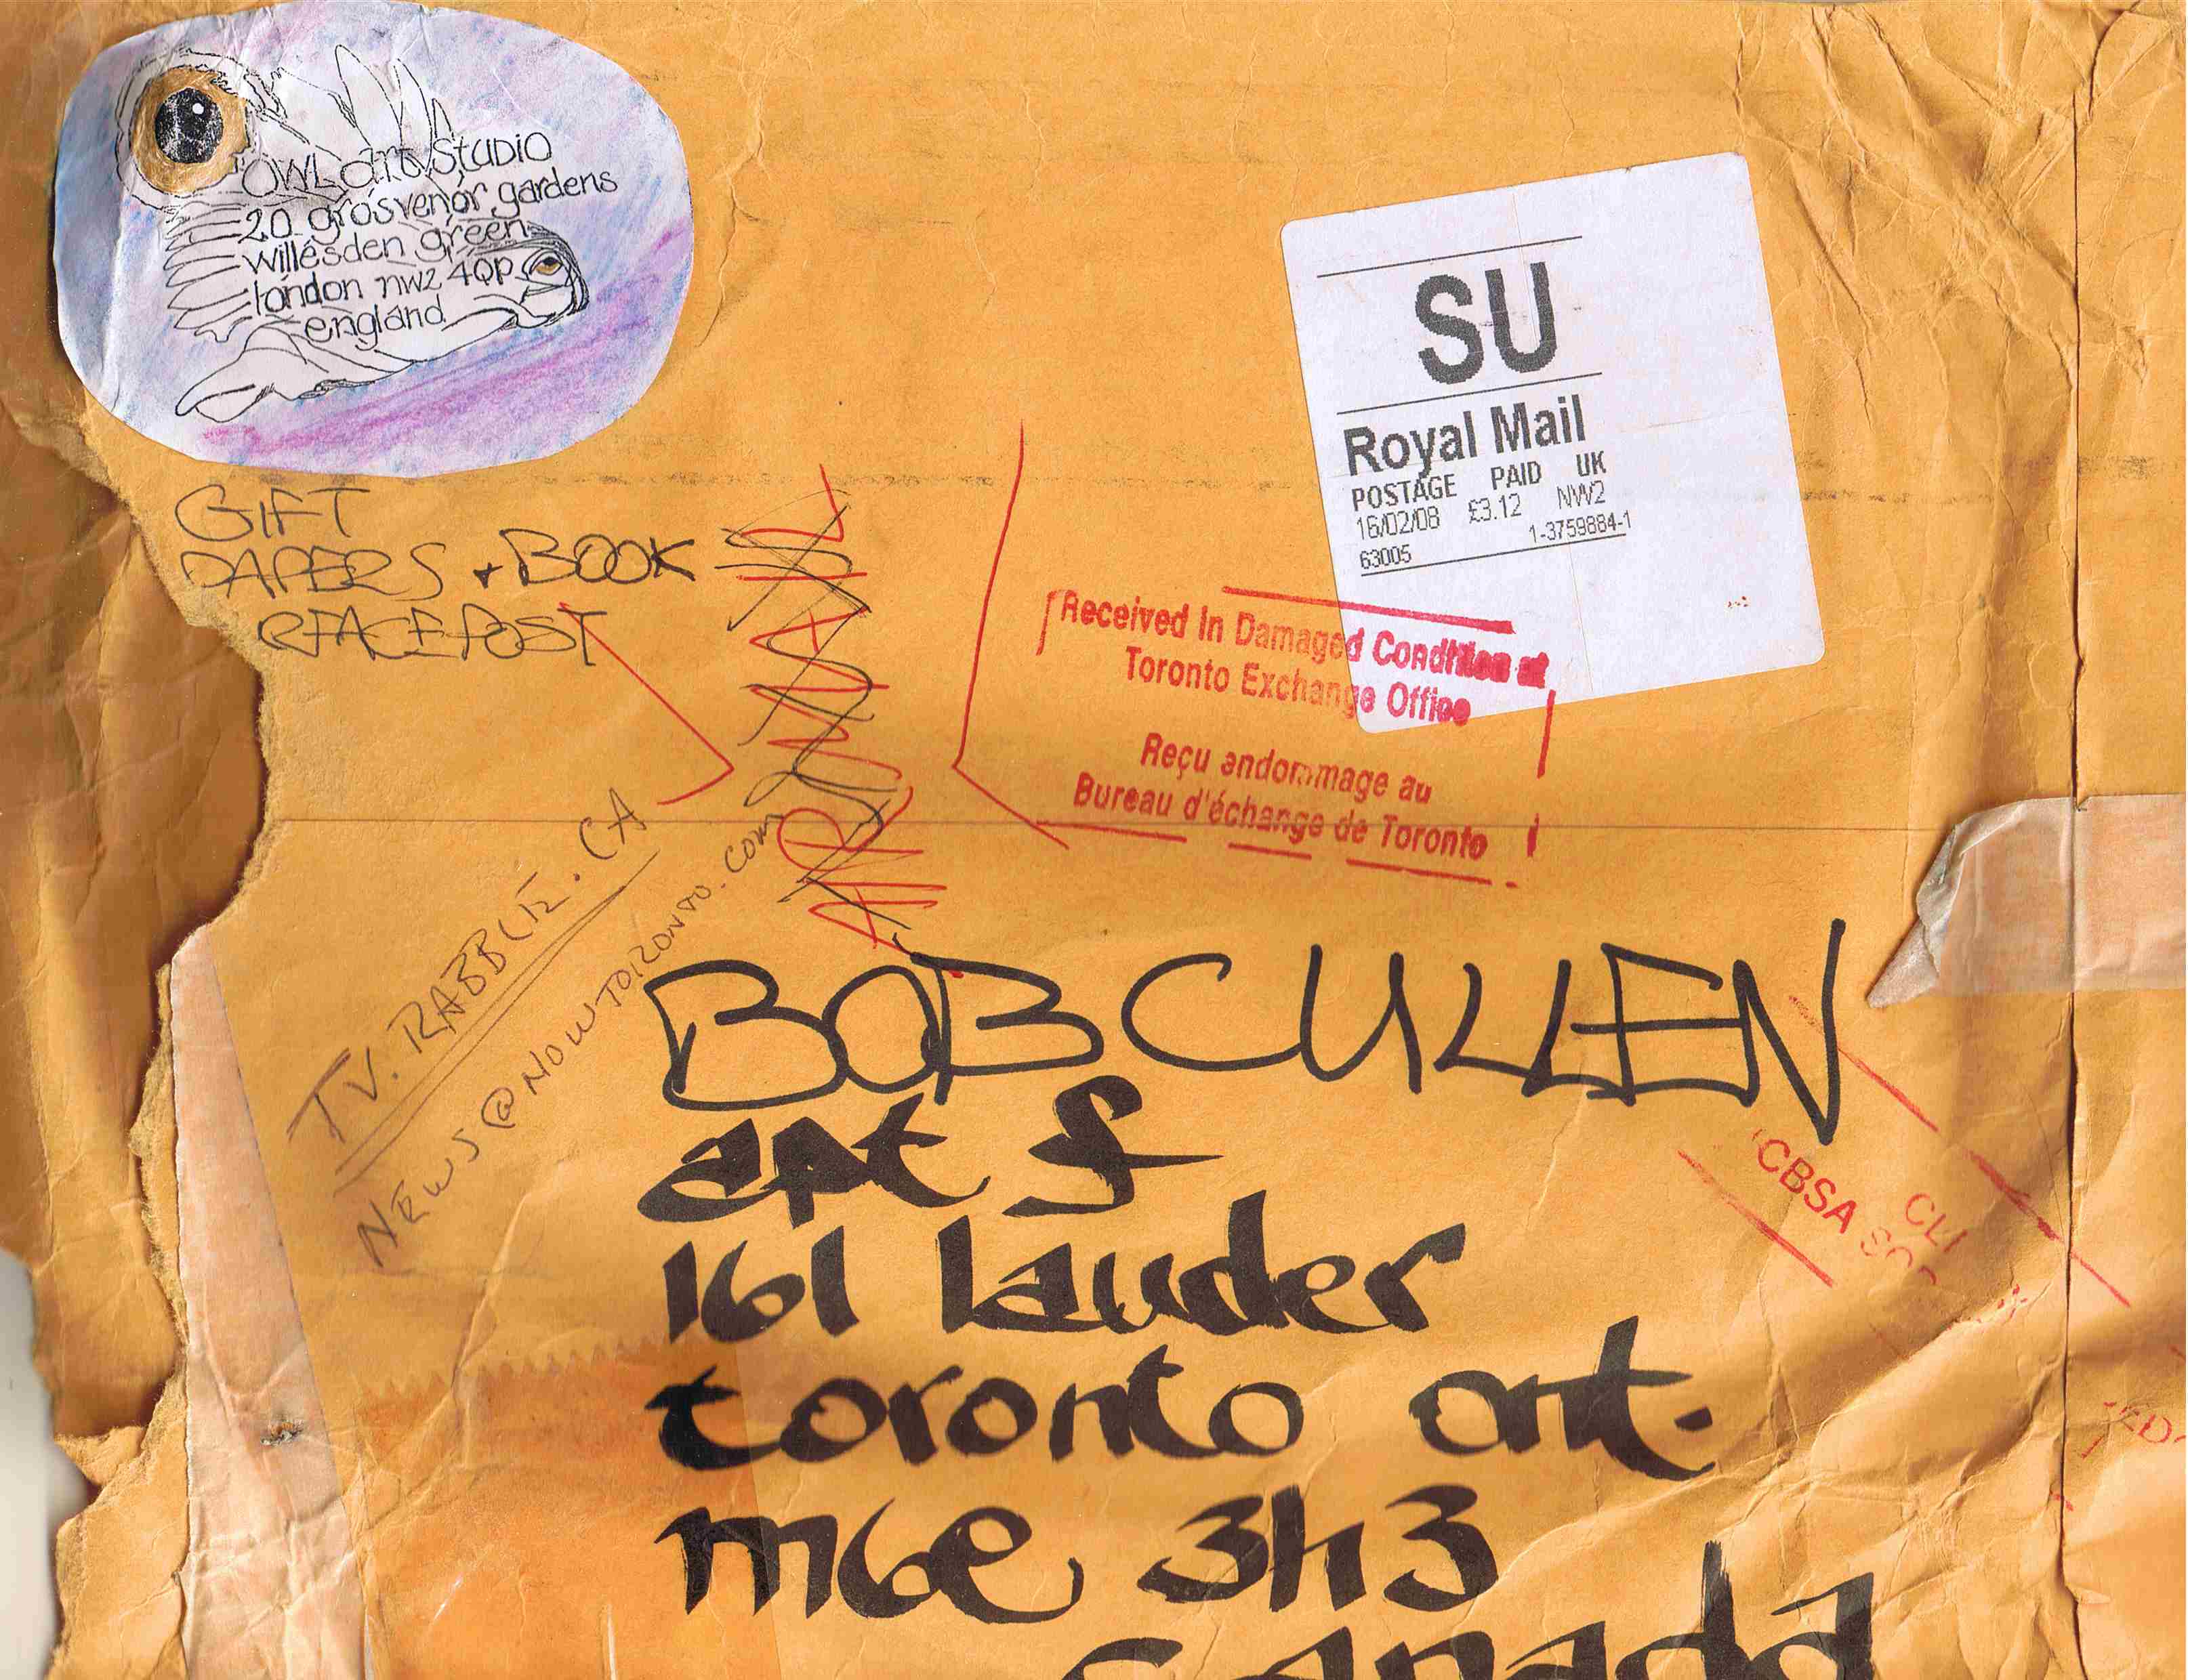 OWL art studio
20 grosvenor gardens
willesden green
london nw2 4QP
england
GIFT
PAPERS + BOOK
PEACEPOST
AIR MAIL
SU
Royal Mail
POSTAGE PAID UK
16/02/08 £3.12 NW2
63005 1-3759884-1
Received In Damaged Condition at
Toronto Exchange Office
Reçu endommage au
Bureau d'échange de Toronto
TV.RABBLE.CA
NEWS@NOWTORONTO.COM
BOB CULLEN
apt f
161 lauder
toronto ont.
m6e 3h3
canada
CBSA